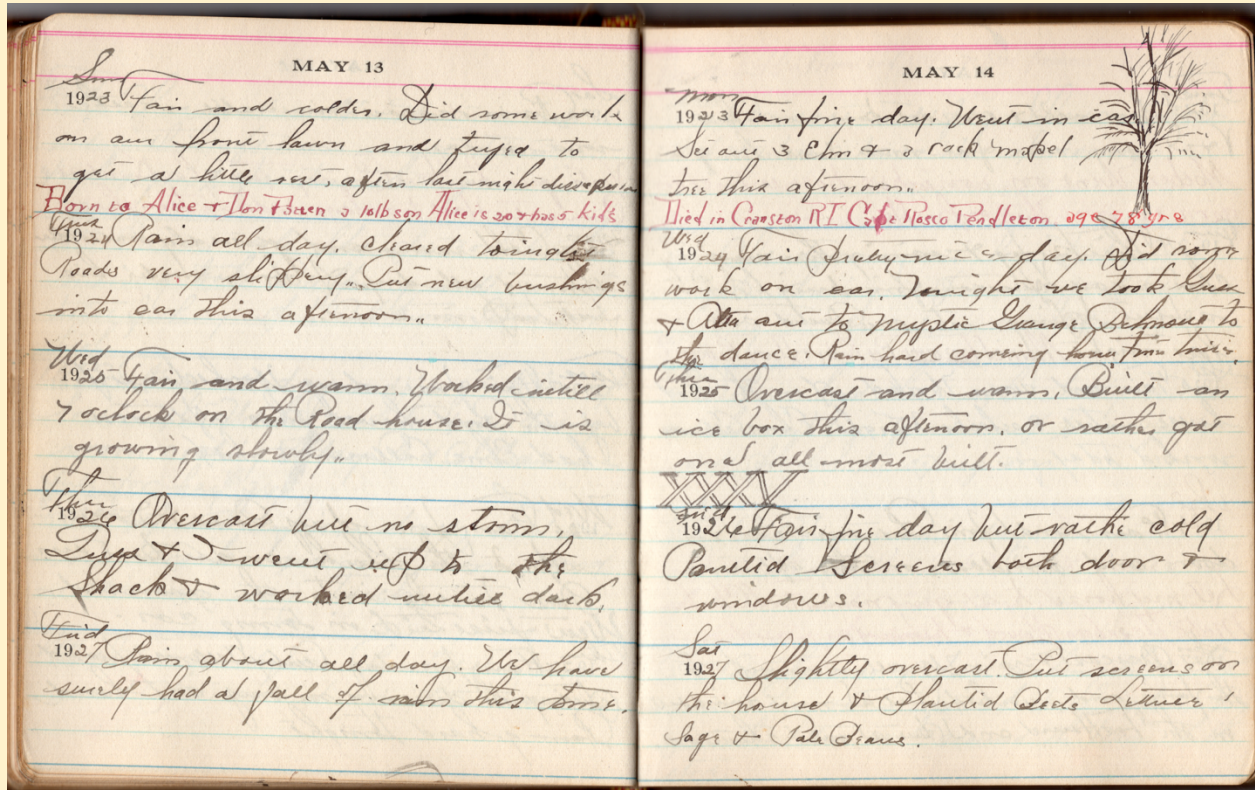 MAY 13
Sun
1923 Fair and colder. Did some work
on our front lawn and tryed to
get a little rest, after last night
Born to Alice + Don a 10lb son Alice is 20 + has 5 kids
1924 Rain all day. cleared tonight
Roads very slippery.. Put new bushings
into car this afternoon..
Wed
1925 Fair and warm. Worked untill
7 oclock on the Road house. It is
growing slowly..
Thur
1926 Overcast but no storm.
Guss & I went up to the
Shack & worked untill dark.
Frid
1927 Rain about all day. We have
surely had a fall of rain this time.
MAY 14
Mon
1923 Fair fine day. Went in car.
Set out 3 Elm & 2 rock mapel
tree this afternoon..
Died in Cranston RI Capt Rosco Pendleton age 78 yrs
Wed
1924 Fair day. Did some
work on car. Tonight we took Guss
& Alta out to Mystic Grange Belmont to
the dance. Rain hard comeing home
Thur
1925 Overcast and warm. Built an
ice box this afternoon. or rather got
one all most built.
XXXX
Frid
1926 Fair fine day but rathe cold
Paintid Screens both door &
windows.
Sat
1927 Slightly overcast. Put screens on
the house & Plantid Beets Lettuce
Sage & Pole Beans.